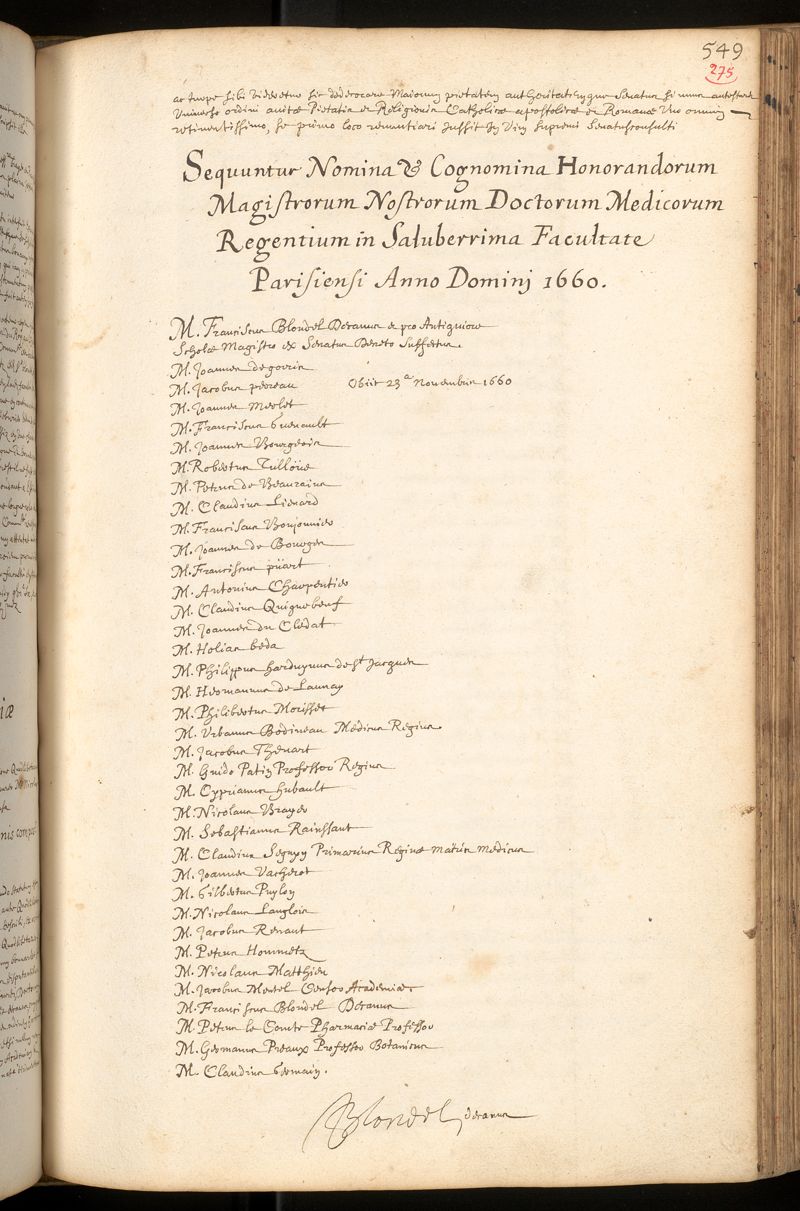 549
275
ac turpe sibi videretur sic dedecorare Maiorum pietatem authoritatemque Senatus si unus
Universo ordini avitæ Pietatis et Religionis Catholicæ apostolicæ et Romanæ Uno omnium
retinentissimo, se primo loco renuntiari jussit In Vim supremi Senatusconsulti
Sequuntur Nomina & Cognomina Honorandorum
Magistrorum Nostrorum Doctorum Medicorum
Regentium in Saluberrima Facultate
Parisiensi Anno Dominj 1660.
M. Franciscus Blondel Decanus et pro Antiquiore
Scholæ Magistro ex Senatus Decreto Suffectus.
M. Joannes degorris
M. Jacobus perreau Obiit 23a Novembris 1660
M. Joannes Merlet
M. Franciscus Guenault
M. Joannes Bourgeois
M. Robertus Tulloüe
M. Petrus de Beaurains
M. Claudius Lienard
M. Franciscus Boujonnier
M. Joannes de Bourges
M. Franciscus püart
M. Antonius Charpentier
M. Claudius Quiquebeuf
M. Joannes du Cledat
M. Holias beda
M. Philippus harduynus de St Jacques
M. Hermannus de Launay
M. Philibertus Morisset
M. Urbanus Bodineau Medicus Regius
M. Jacobus Thevart
M. Guido Patin Professor Regius
M. Cyprianus hubault
M. Nicolaus Brayer
M. Sebastianus Rainssant
M. Claudius Seguyn Primarius Reginæ matris medicus
M. Joannes Vacherot
M. Gilbertus Puylon
M. Nicolaus Langlois
M. Jacobus Regnaut
M. Petrus Hommetz
M. Nicolaus Matthieu
M. Jacobus Mentel Censor Academiæ
M. Franciscus Blondel Decanus
M. Petrus le Comte Pharmaciæ Professor
M. Germanus Preaux Professor Botanicus
M. Claudius Germain.
Blondel, decanus